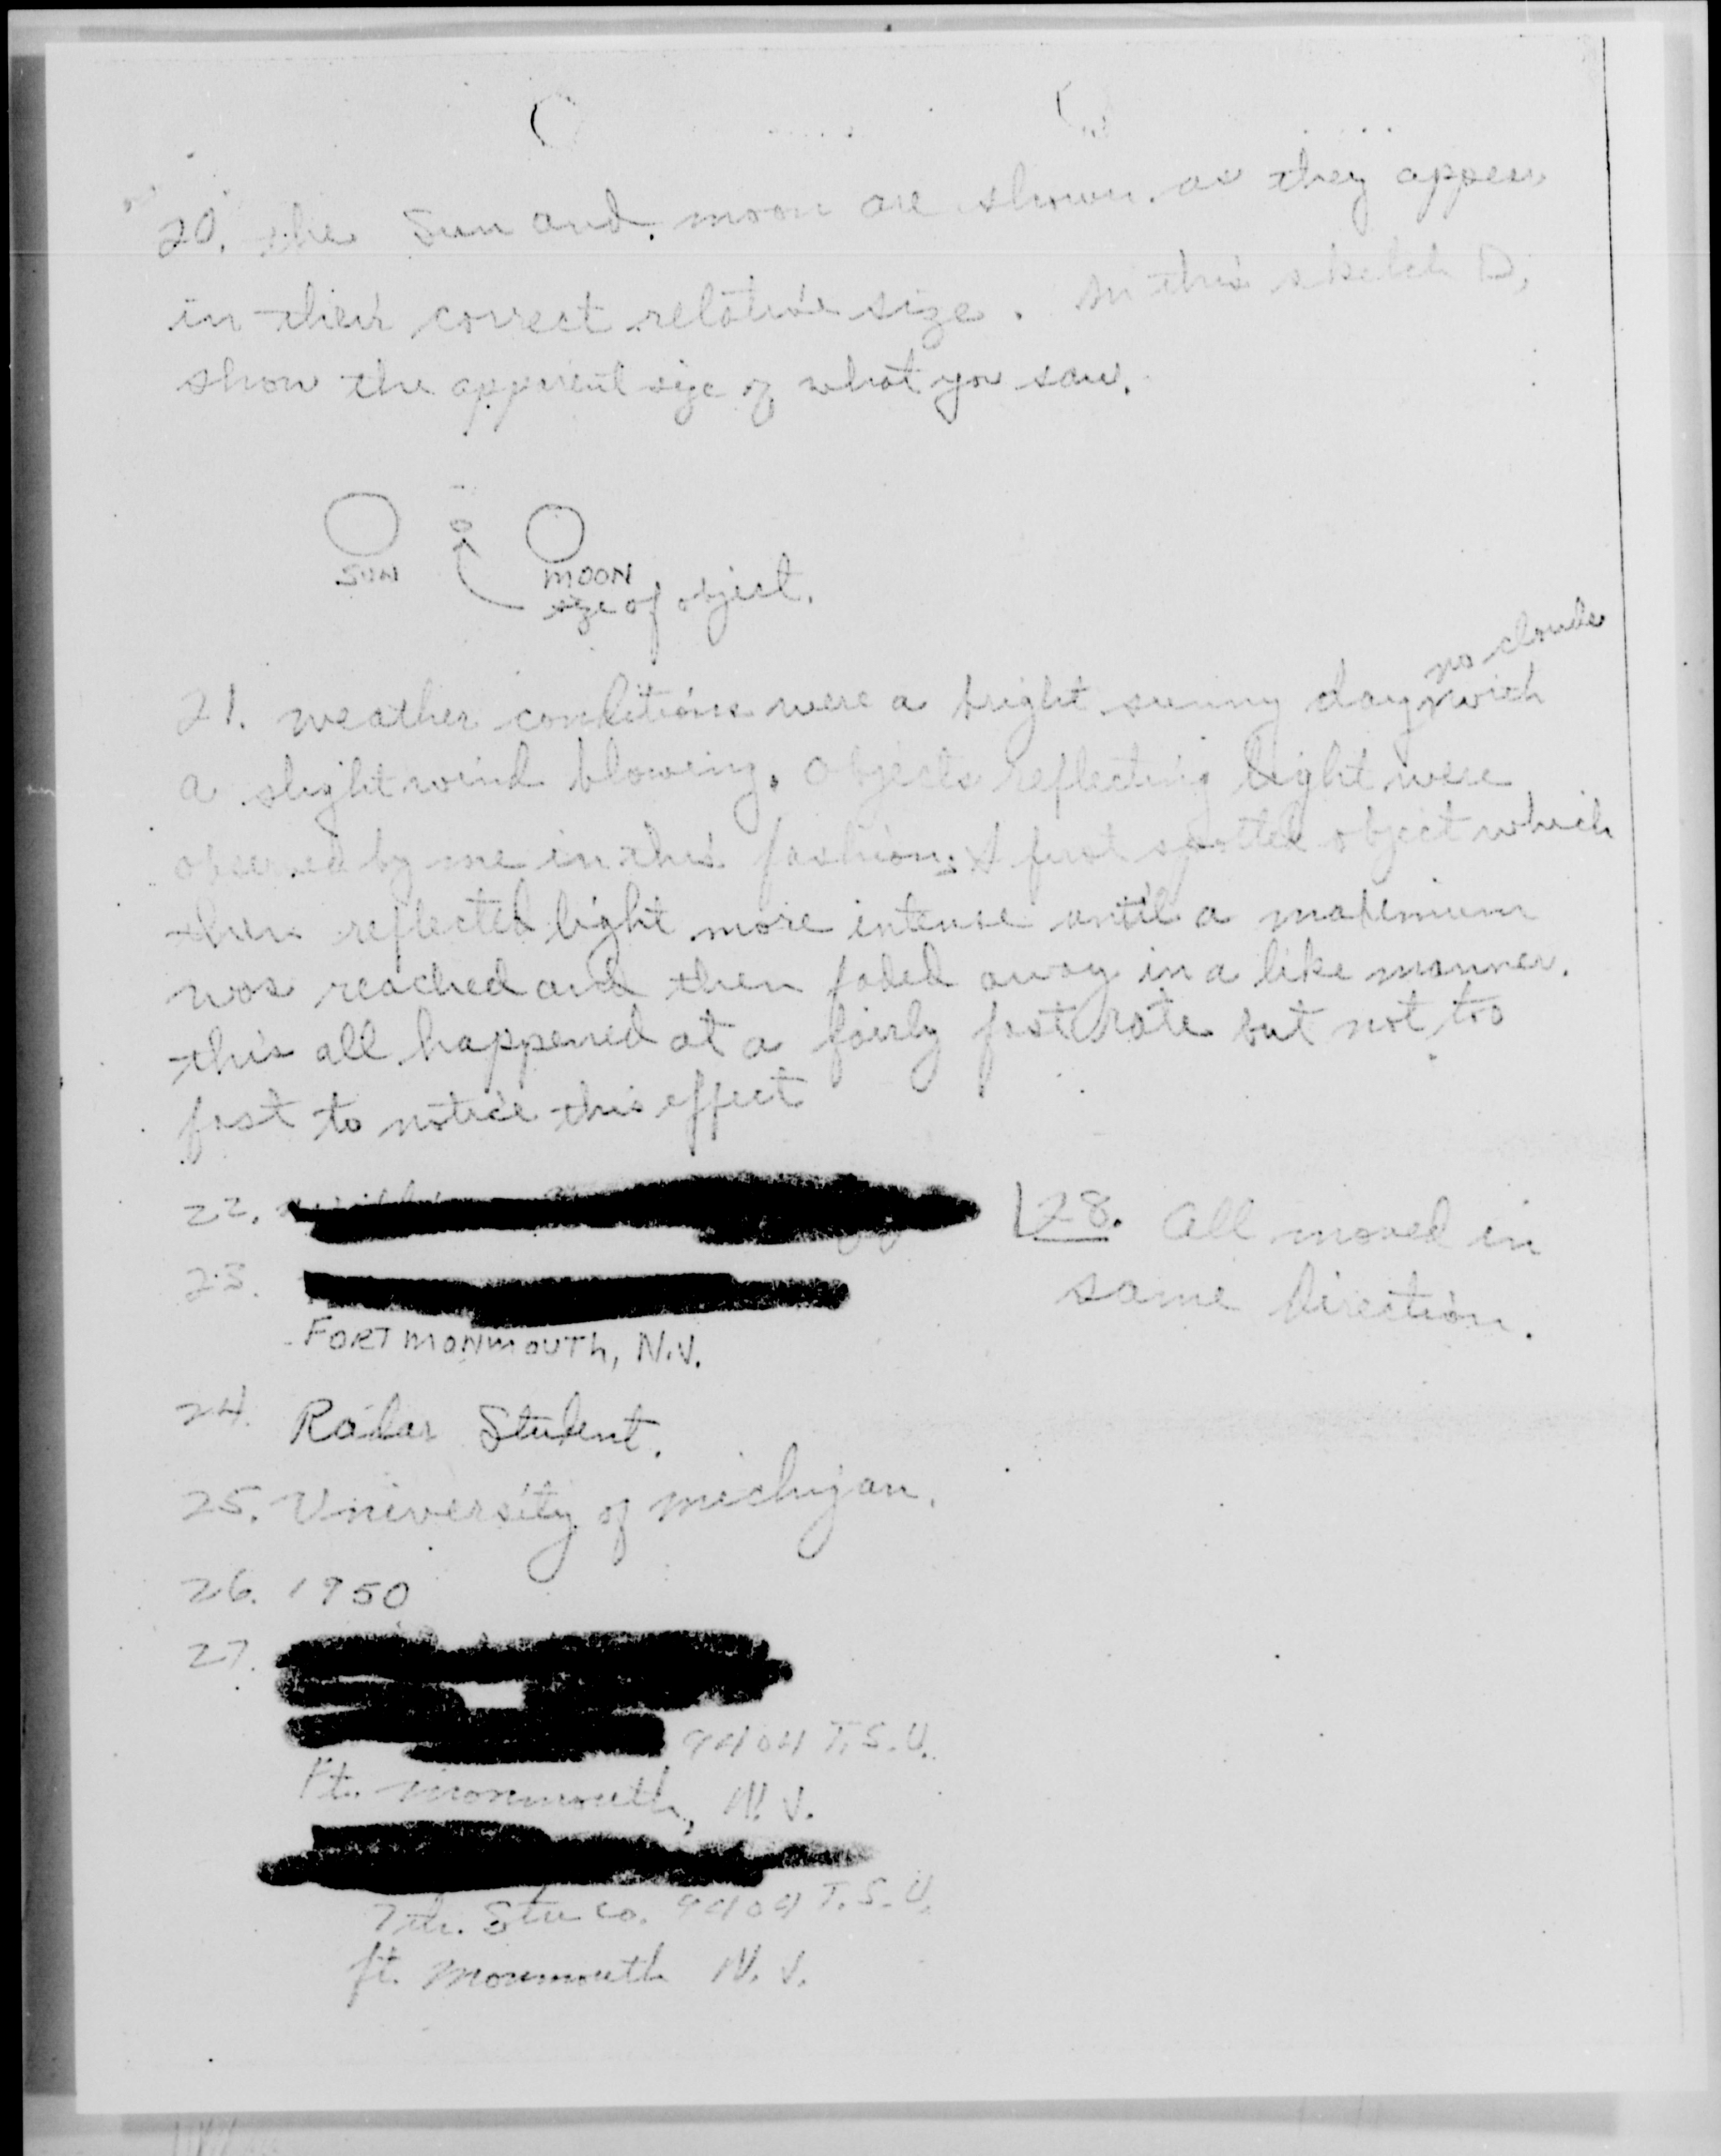 20. the Sun and moon are shown as they appear
in their correct relative size. In this sketch D,
show the apparent size of what you saw.
SUN
MOON
size of object.
no clouds
21. weather conditions were a bright sunny day with
a slight wind blowing. Objects reflecting light were
observed by me in this fashion; I first spotted object which
then reflected light more intense until a maximium
was reached and then faded away in a like manner.
this all happened at a fairly fast rate but not too
fast to notice this effect
22.
28. All moved in
same direction.
23.
FORT MONMOUTH, N.J.
24. Radar Student.
25. University of michigan.
26. 1950
27.
9404 T.S.U.
Ft. Monmouth, N.J.
7th. Stu Co. 9404 T.S.U.
ft. Monmouth N.J.